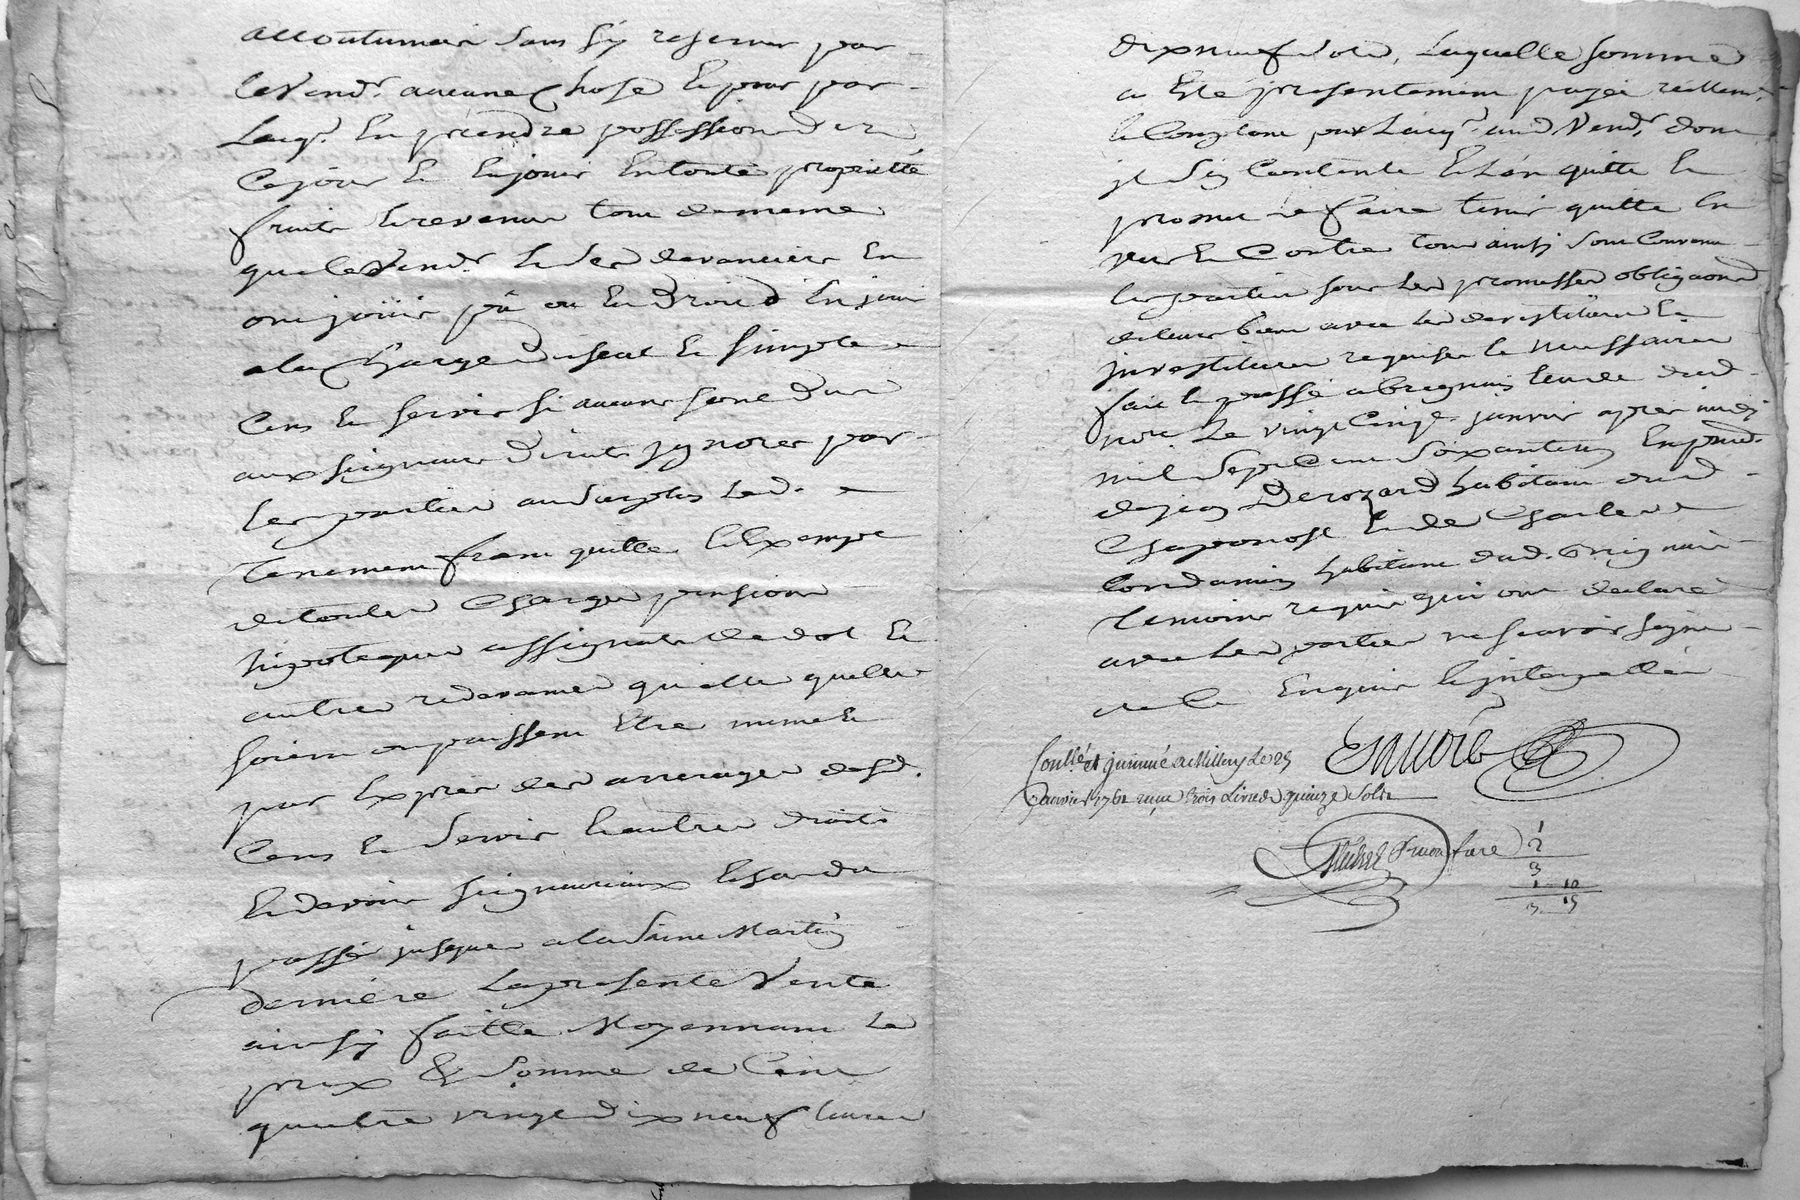 accoutumées sans s'y reserver par
le Vendr. aucune chose et pour par
Lacqr. En prendre possession dez
Cejour Et En jouir En toute proprietté
fruits Et revenus tout demême
que le Vendr. Et ses devanciers En
ont joüir pû ou Eu droit d'En jouir
ala charge du seul Et simple
Cens Et servis si aucuns sont dus
aux seigneurs directs ignorés par
les parties au surplus led.
tenement franc quitte Et Exempt
de toutes charges pensions
hipoteques assignats de dot Et
autres redevances quelles quelles
soient ou puissent Etre même Et
par Exprès des arrerages desd.
Cens Et servis Et autres droits
Et devoirs seigneuriaux Echeus du
passé jusques ala saint Martin
derniere La presente Vente
ainsy faitte Moyennant Le
prix & somme de Cent
quatre vingt dix neuf livres
dix neuf sols, Laquelle somme
a Eté presentement payée réellemt.
Et Comptant par Lacqr. aud. Vendr. dont
il s'en Contente Et L'en quitte Et
promet le faire tenir quitte En
vers Et Contre tous ainsy sont Convenu
les parties sous les promesses obligaons
de leurs biens avec les devestitures Et
investitures requises Et necessaires
fait Et passé a Brignais Etude dud.
notre. Le vingt Cinqe. janvier après midy
mil sept Cent soixante un En pnce.
de jean Derozard habitant dud.
Chaponost Et de Charles
Condamin habitant dud. Brignais
temoins requis qui ont declaré
avec les parties ne scavoir signer
de ce Enquis Et interpellés
Contllé. et jnsinué a Millery Le 25
Janvier 1761 reçu trois Livres quinze Sols
1
2
3
1 10
3 15